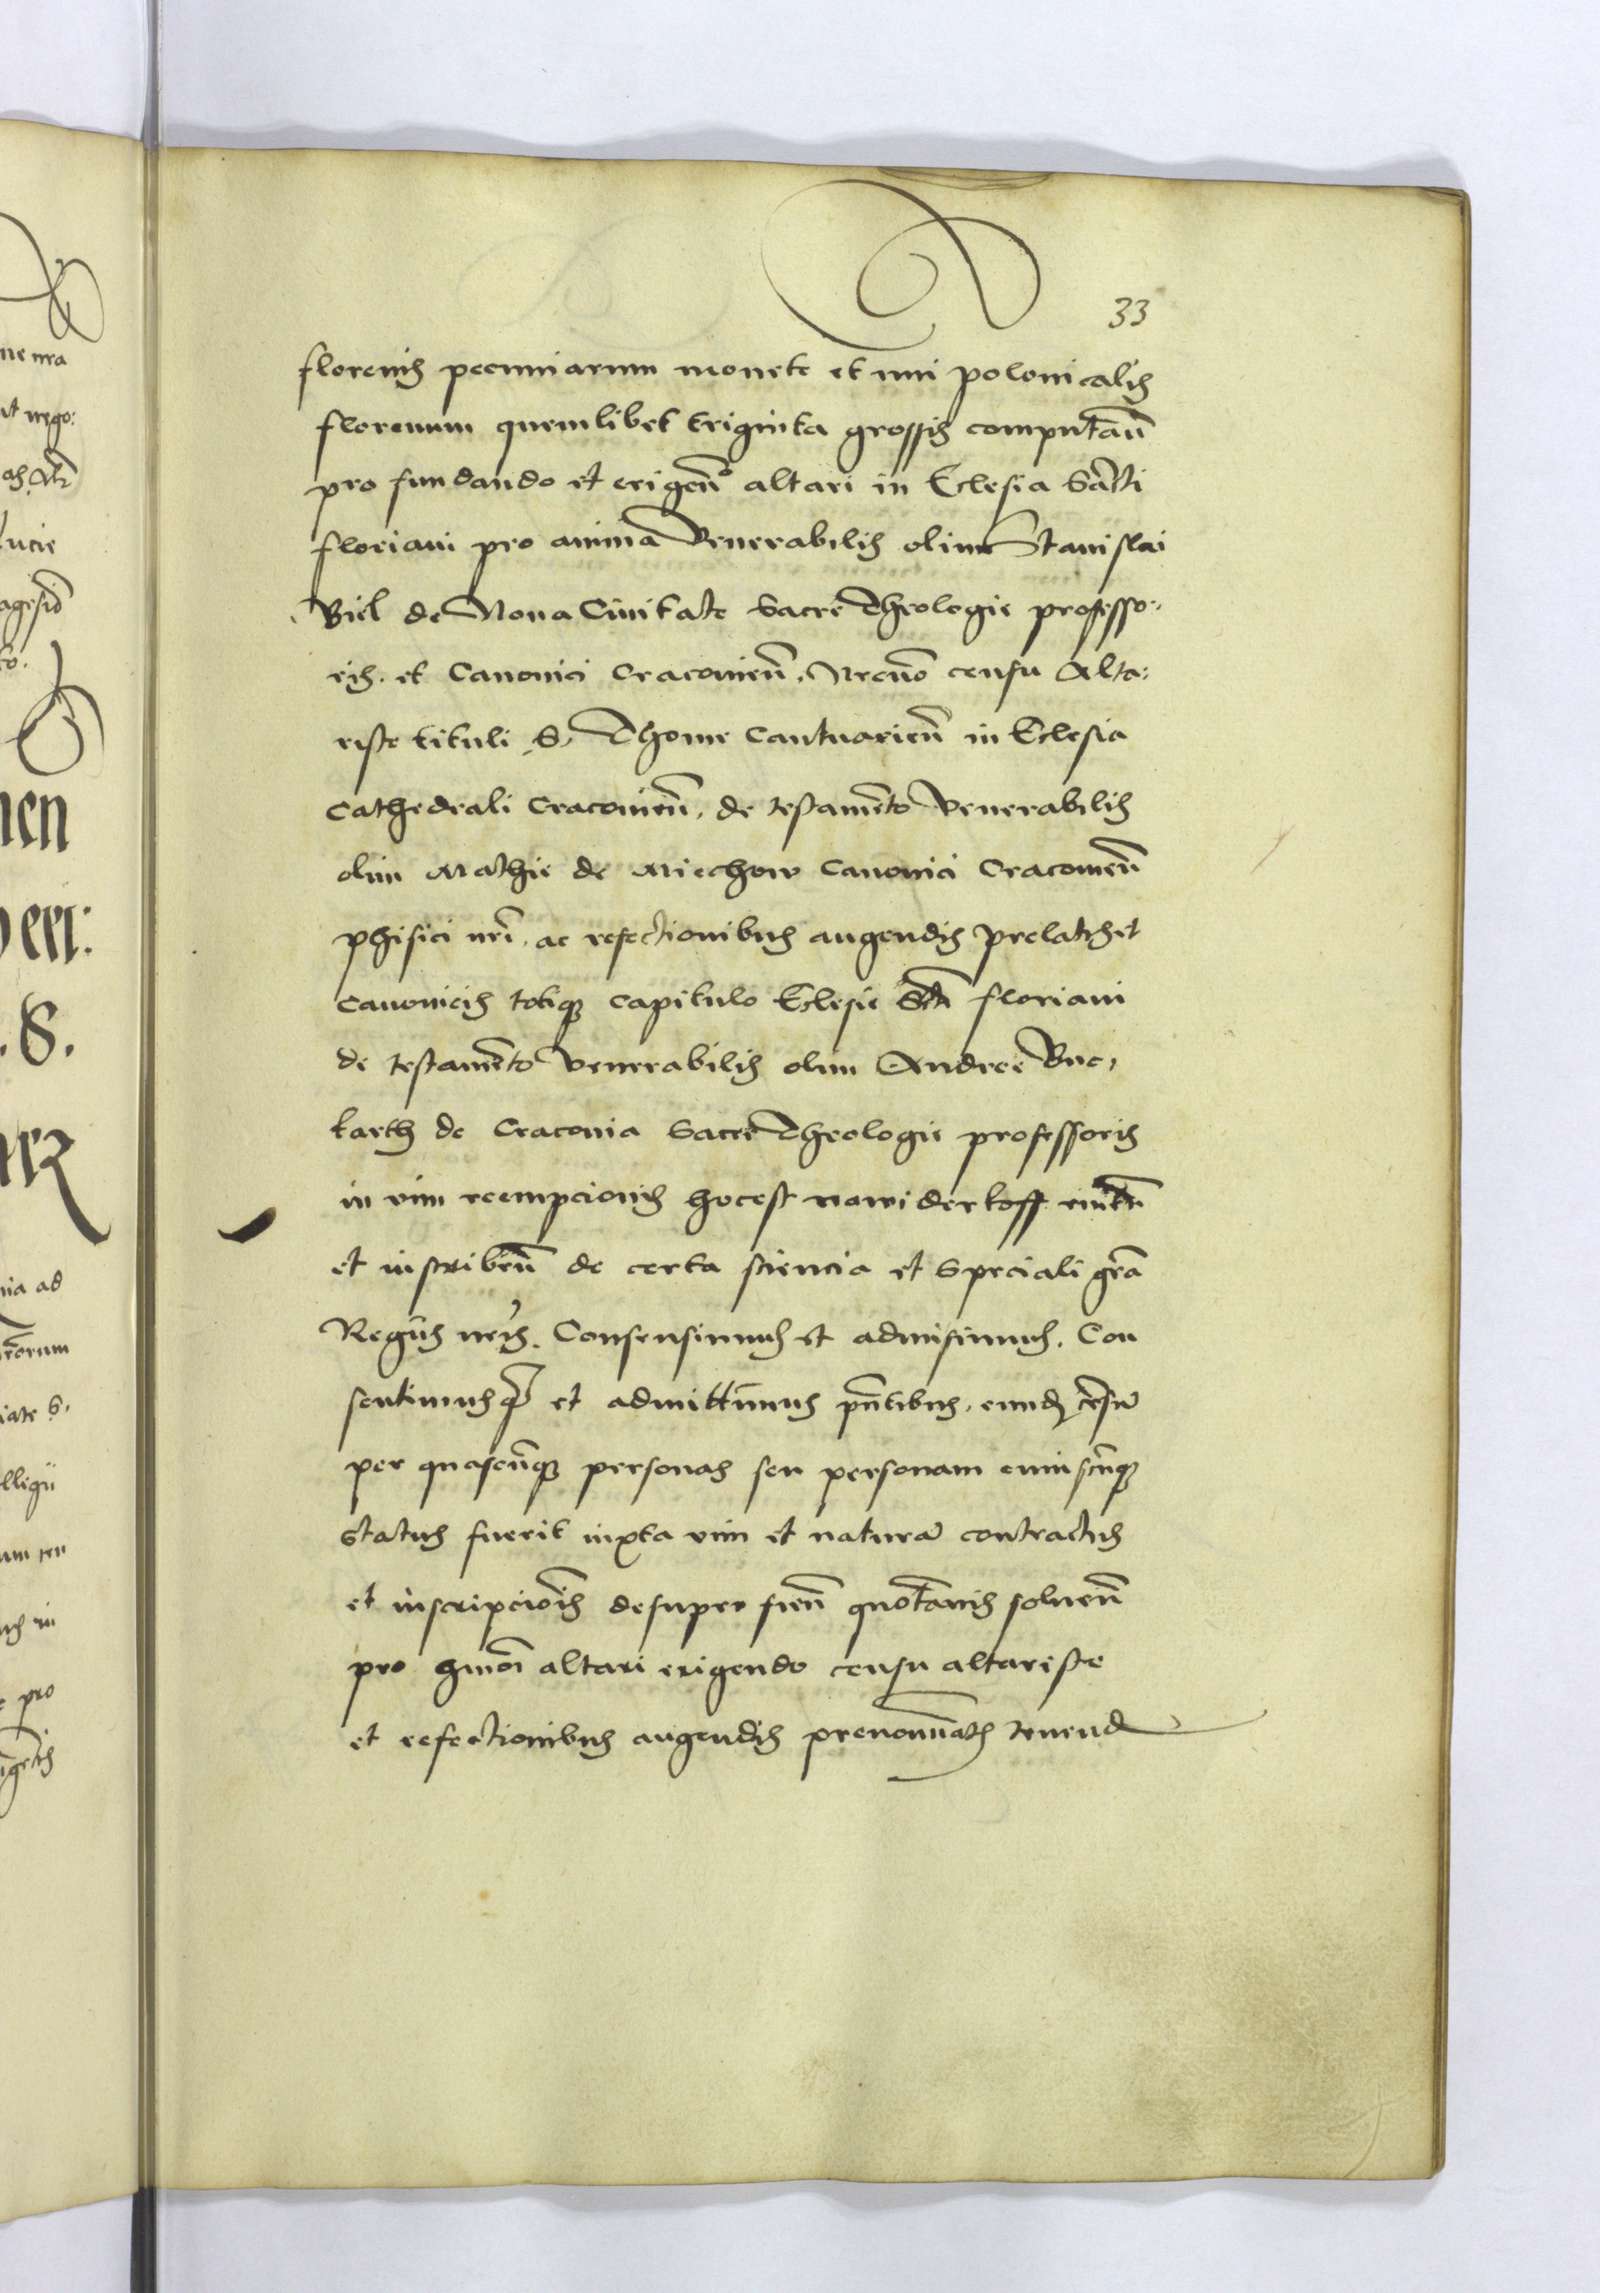 33
florenis pecuniarum monete et nūi polonicalis
florenum quemlibet triginta grossis computañ
pro fundando et erigeñ° altari in Eclesia Sācti
floriani pro anima Venerabilis olim Stanislai
Biel de Noua Ciuitate Sacre Theologie professo:
ris. et Canonici Cracouieñ, Necnō censu Alta:
riste tituli S. Thome Cantuarieñ in Eclesia
Cathedrali Cracouieñ, de testamēto Venerabilis
olim Mathie de Miechow Canonici Cracouieñ
phisici nr̄i, ac refectionibus augendis prelatis et
Canonicis totiqȝ Capitulo Eclesie Sctī floriani
de testamēto Venerabilis olim Andree Buc,
karth de Cracouia Sacre Theologie professoris
in vim reempcionis hocest nawiderkoff
et inscribeñ de certa sciencia et speciali gr̄a
Regiis nr̄is. Consensimus et admisimus. Con
sentimusqȝ et admittimus pn̄tibus, eundȝ cēsū
per quascūqȝ personas seu personam cuiuscūqȝ
status fuerit iuxta vim et naturā contractus
et inscripcōis desuper fieñ quotānis solueñ
pro hmōi altari erigendo censu altariste
et refectionibus augendis prenominatis tenend